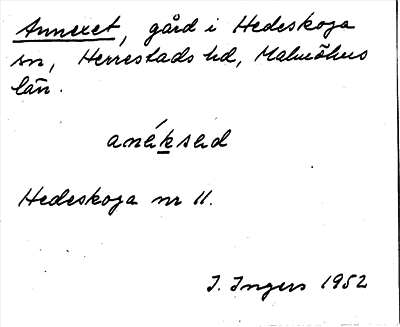 Annexet, gård i Hedeskoga
sn, Herrestads hd, Malmöhus
län.
anéksed
Hedeskoga nr 11.
I. Ingers 1952